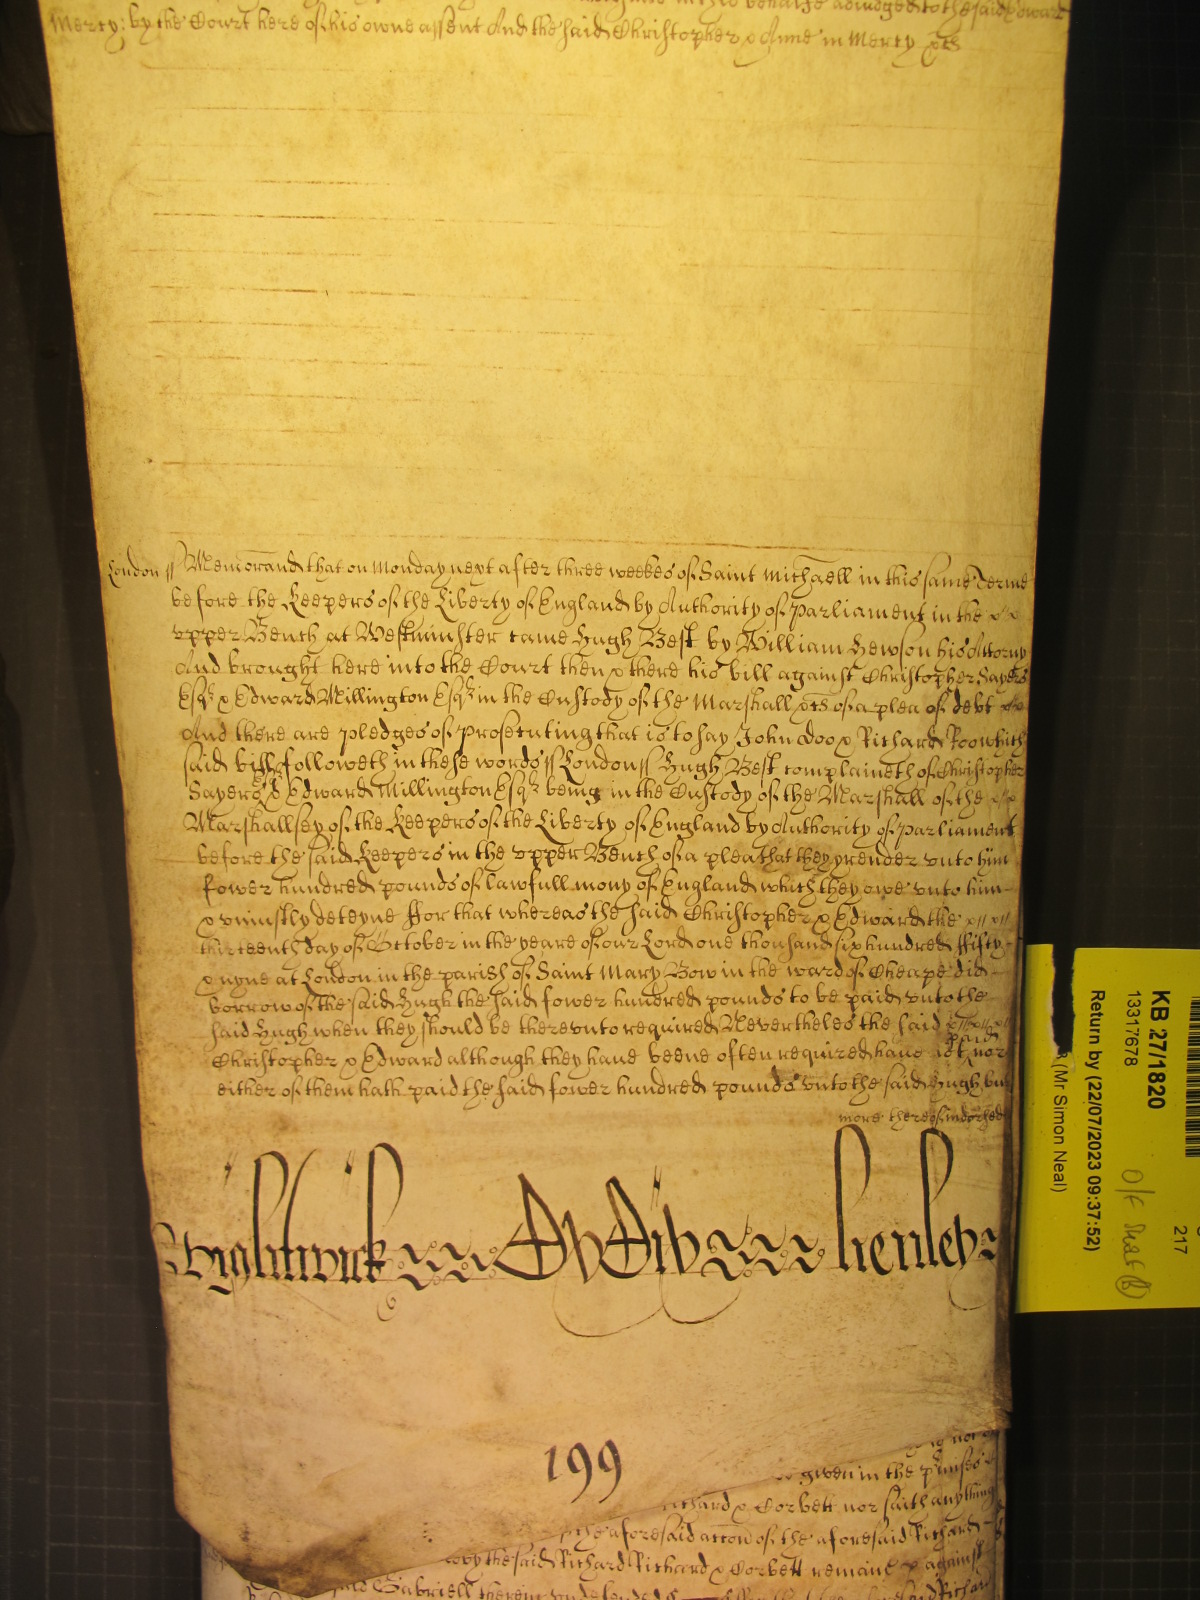 in this behalfe adiudged to the said Edward
Mercy: by the Court here of his owne assent And the said Christopher & Anne in Mercy &c
London ss Memorand that on Monday next after three weekes of Saint Michaell in this same Terme
before the Keepers of the Liberty of England by Authority of Parliament in the
upper Bench at Westminster came Hugh Best by William Hewson his Attorny
And brought here into the Court then & there his bill against Christopher Sayers
Esqr & Edward Millington Esqr in the Custody of the Marshall &c of a plea of debt
And there are pledges of prosecuting that is to say John Doo & Richard Roo which
said bill followeth in these words ss London ss Hugh Best complaineth of Christopher
Sayers & Edward Millington Esqr being in the Custody of the Marshall of the
Marshallsey of the Keepers of the Liberty of England by Authority of Parliament
before the said Keepers in the upper Bench of a plea that they render unto him
fower hundred pounds of lawfull mony of England which they owe unto him
& uniustly deteyne ffor that whereas the said Christopher & Edward the
thirteenth day of October in the yeare of our Lord one thousand six hundred ffifty
& nyne at London in the parish of Saint Mary Bow in the ward of Cheape did
borrow of the said Hugh the said fower hundred pounds to be paid unto the
said Hugh when they should be thereunto required Nevertheles the said
Christopher & Edward although they haue beene often required haue not paid nor
either of them hath paid the said fower hundred pounds unto the said Hugh but
more thereof indorsed
Wightwick henley
199
given in the
Richard & Corbett nor saith anything
the aforesaid accon of the aforesaid Richard
by the said Richard Richard & Corbett remaine & against
said Gabriell therein undefended
KB 27/1820
13317678
Return by (22/07/2023 09:37:52)
(Mr Simon Neal)
217